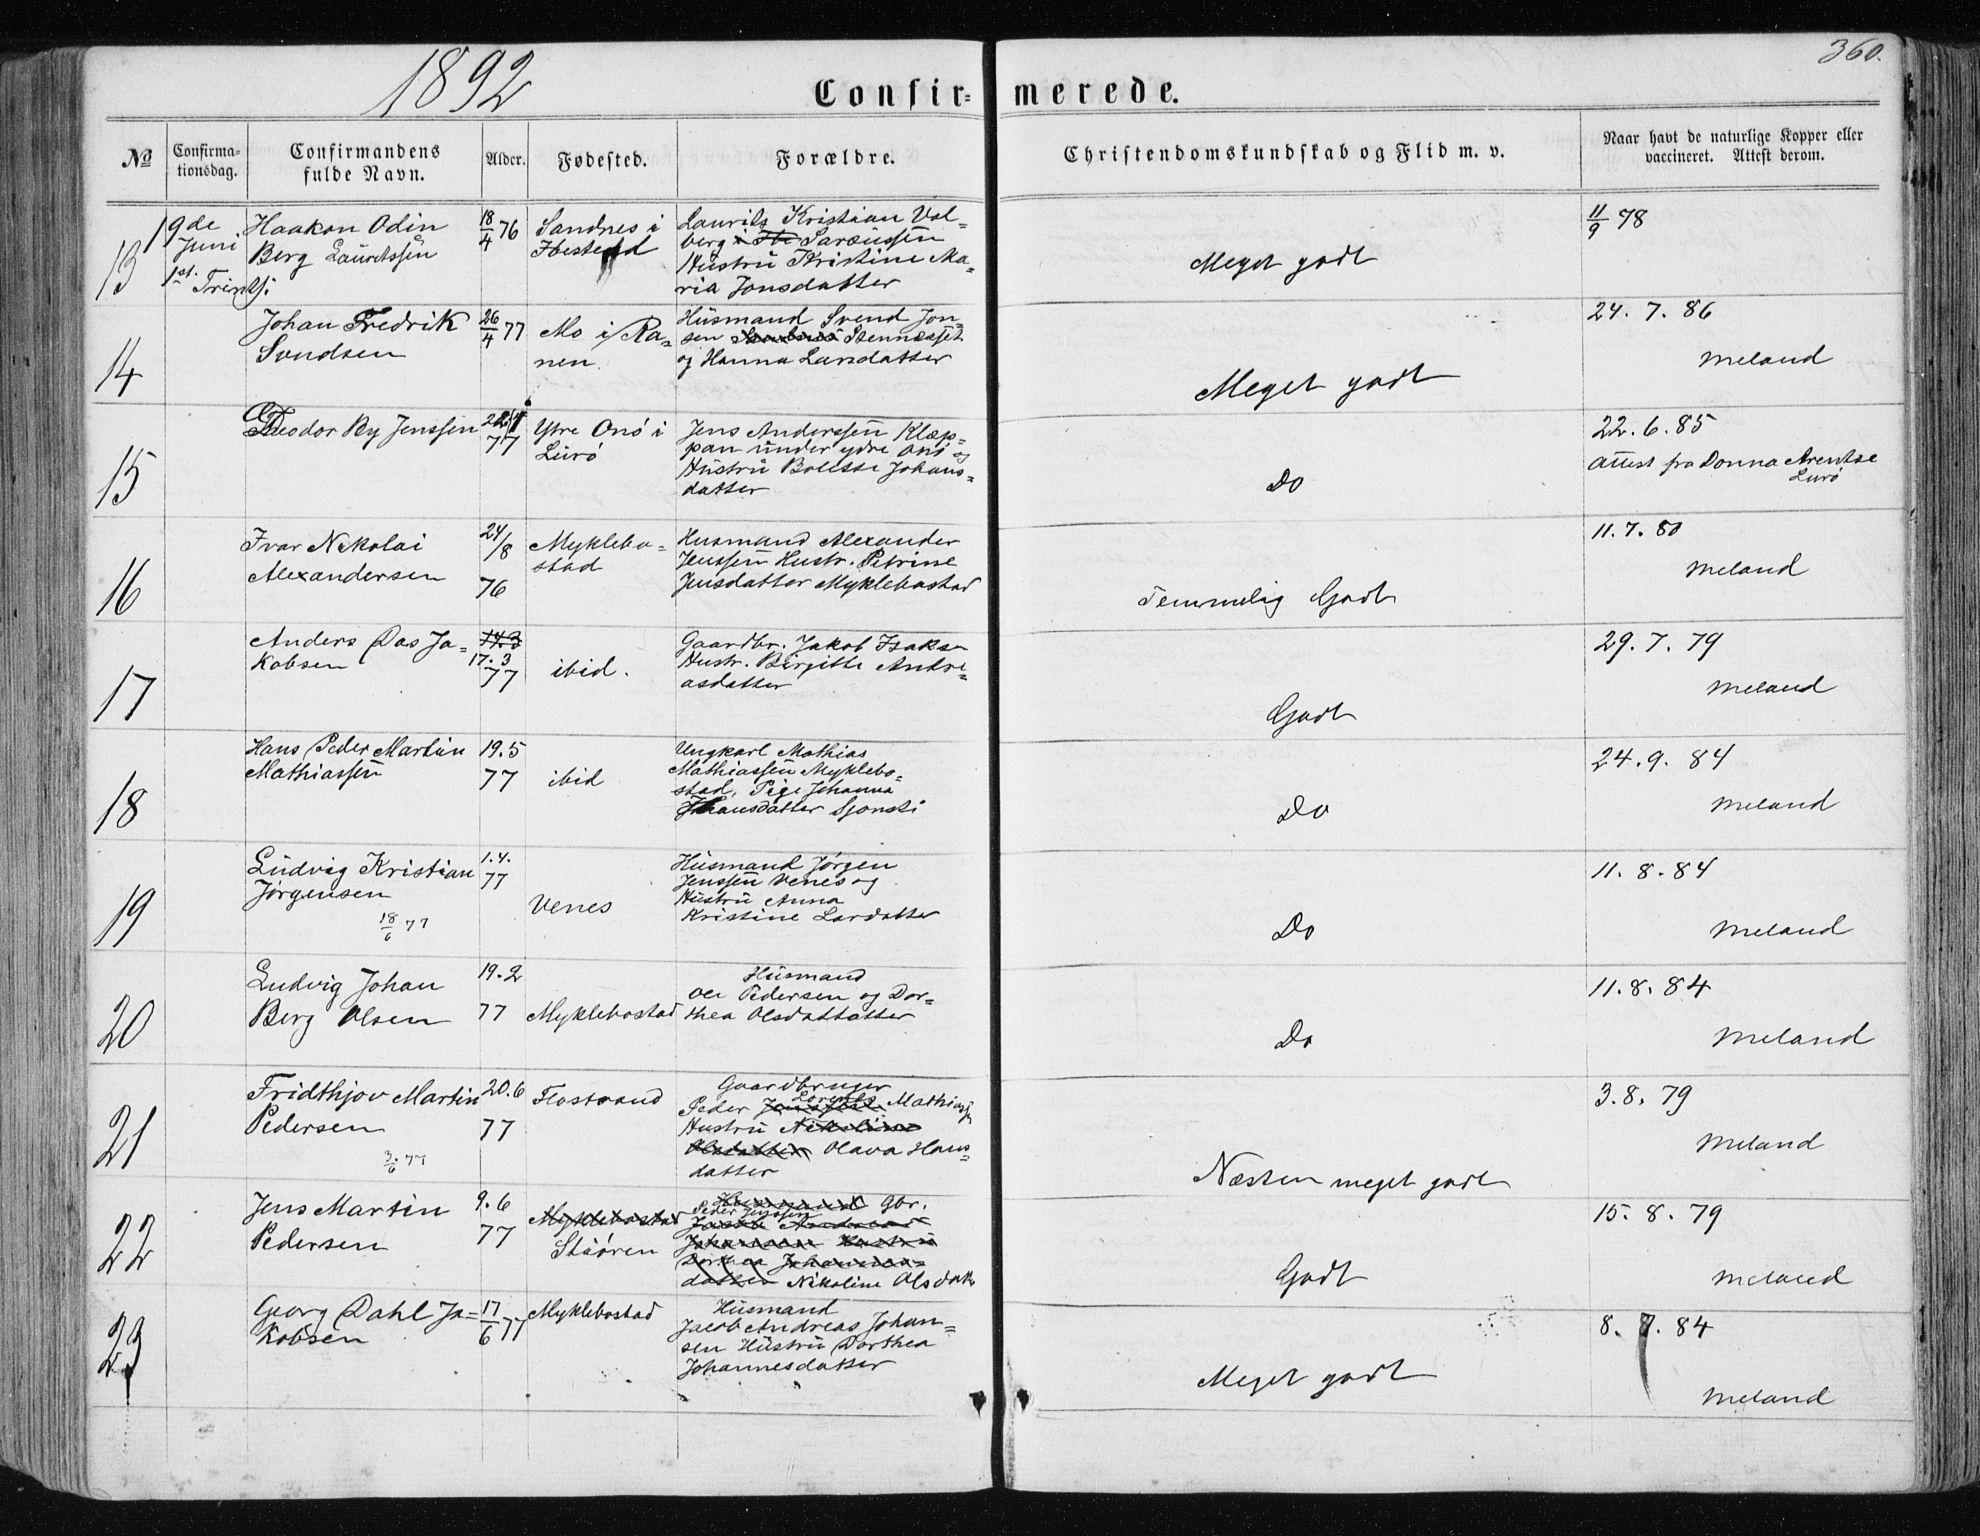 1892
360.
Confir=
merede.
No
Confirma-
tionsdag.
Confirmandens
fulde Navn.
Alder.
Fødested.
Forældre.
Christendomskundskab og Flid m. v.
Naar havt de naturlige Kopper eller
vaccineret. Attest derom.
13
19de
Juni
1st.
Trinit:
Haakon Odin
Berg Lauritssen
18/4 76
Sandnes i
Ibestad
Laurits Kristian Vol-
berg Saræussen
Hustru Kristine Ma-
ria Jonsdatter
Meget godt
11/9 78
14
Johan Fredrik
Svendsen
26/4 77
Mo i Ra-
nen.
Husmand Svend Jon-
sen Stennæsset
og Hanna Larsdatter
Meget godt
24. 7. 86
Meland
15
Teodor By Jenssen
77
Ytre Onö i
Lurö
Jens Anderssen Klæp-
pan under ydre Onö og
Hustru Bolette Johans-
datter
Do
22. 6. 85
Attest fra Donna Arentse
Lurö
16
Ivar Nikolai
Alexandersen
24/8
76
Myklebo-
stad
Husmand Alexander
Jenssen Hustr. Petrine
Jensdatter Myklebostad
Temmelig Godt
11. 7. 80
Meland
17
Anders Das Ja-
kobsen
14.3
17. 3
77
ibid.
Gaardbr. Jakob Isaks
Hustr. Birgitte Andre-
asdatter
Godt
29. 7. 79
Meland
18
Hans Peder Martin
Mathiassen
19. 5
77
ibid
Ungkarl Mathias
Mathiassen Myklebo-
stad, Pige Johanna
Johansdatter Sjonsti
Do
24. 9. 84
Meland
19
Ludvig Kristian
Jörgensen
18/6 77
1. 4.
77
Venes
Husmand Jörgen
Jenssen Venes og
Hustru Anna
Kristine Lardatter
Do
11. 8. 84
Meland
20
Ludvig Johan
Berg Olsen
19. 2
77
Myklebostad
Husmand
Ole Pedersen og Dor-
thea Olsdattatter
Do
11. 8. 84
Meland
21
Fridthjov Martin
Pedersen
3/6 77
20. 6
77
Flostrand
Gaardbruger
Lorents
Peder Jenssen Mathiass
Hustru Nikoline
Olsdatter Olava Hans-
datter
Næsten meget godt
3. 8. 79
Meland
22
Jens Martin
Pedersen
9. 6
77
Myklebostad
Stiören
Husmand Gbr.
Peder Jenssen
Jacob Andreas
Johansen Hustru
Dorthea Johannes-
datter Nikoline Olsdatt
Godt
15. 8. 79
Meland
23
Georg Dahl Ja-
kobsen
17/6 77
Myklebostad
Husmand
Jacob Andreas Johan-
sen Hustru Dorthea
Johannesdatter
Meget godt
8. 7. 84
Meland